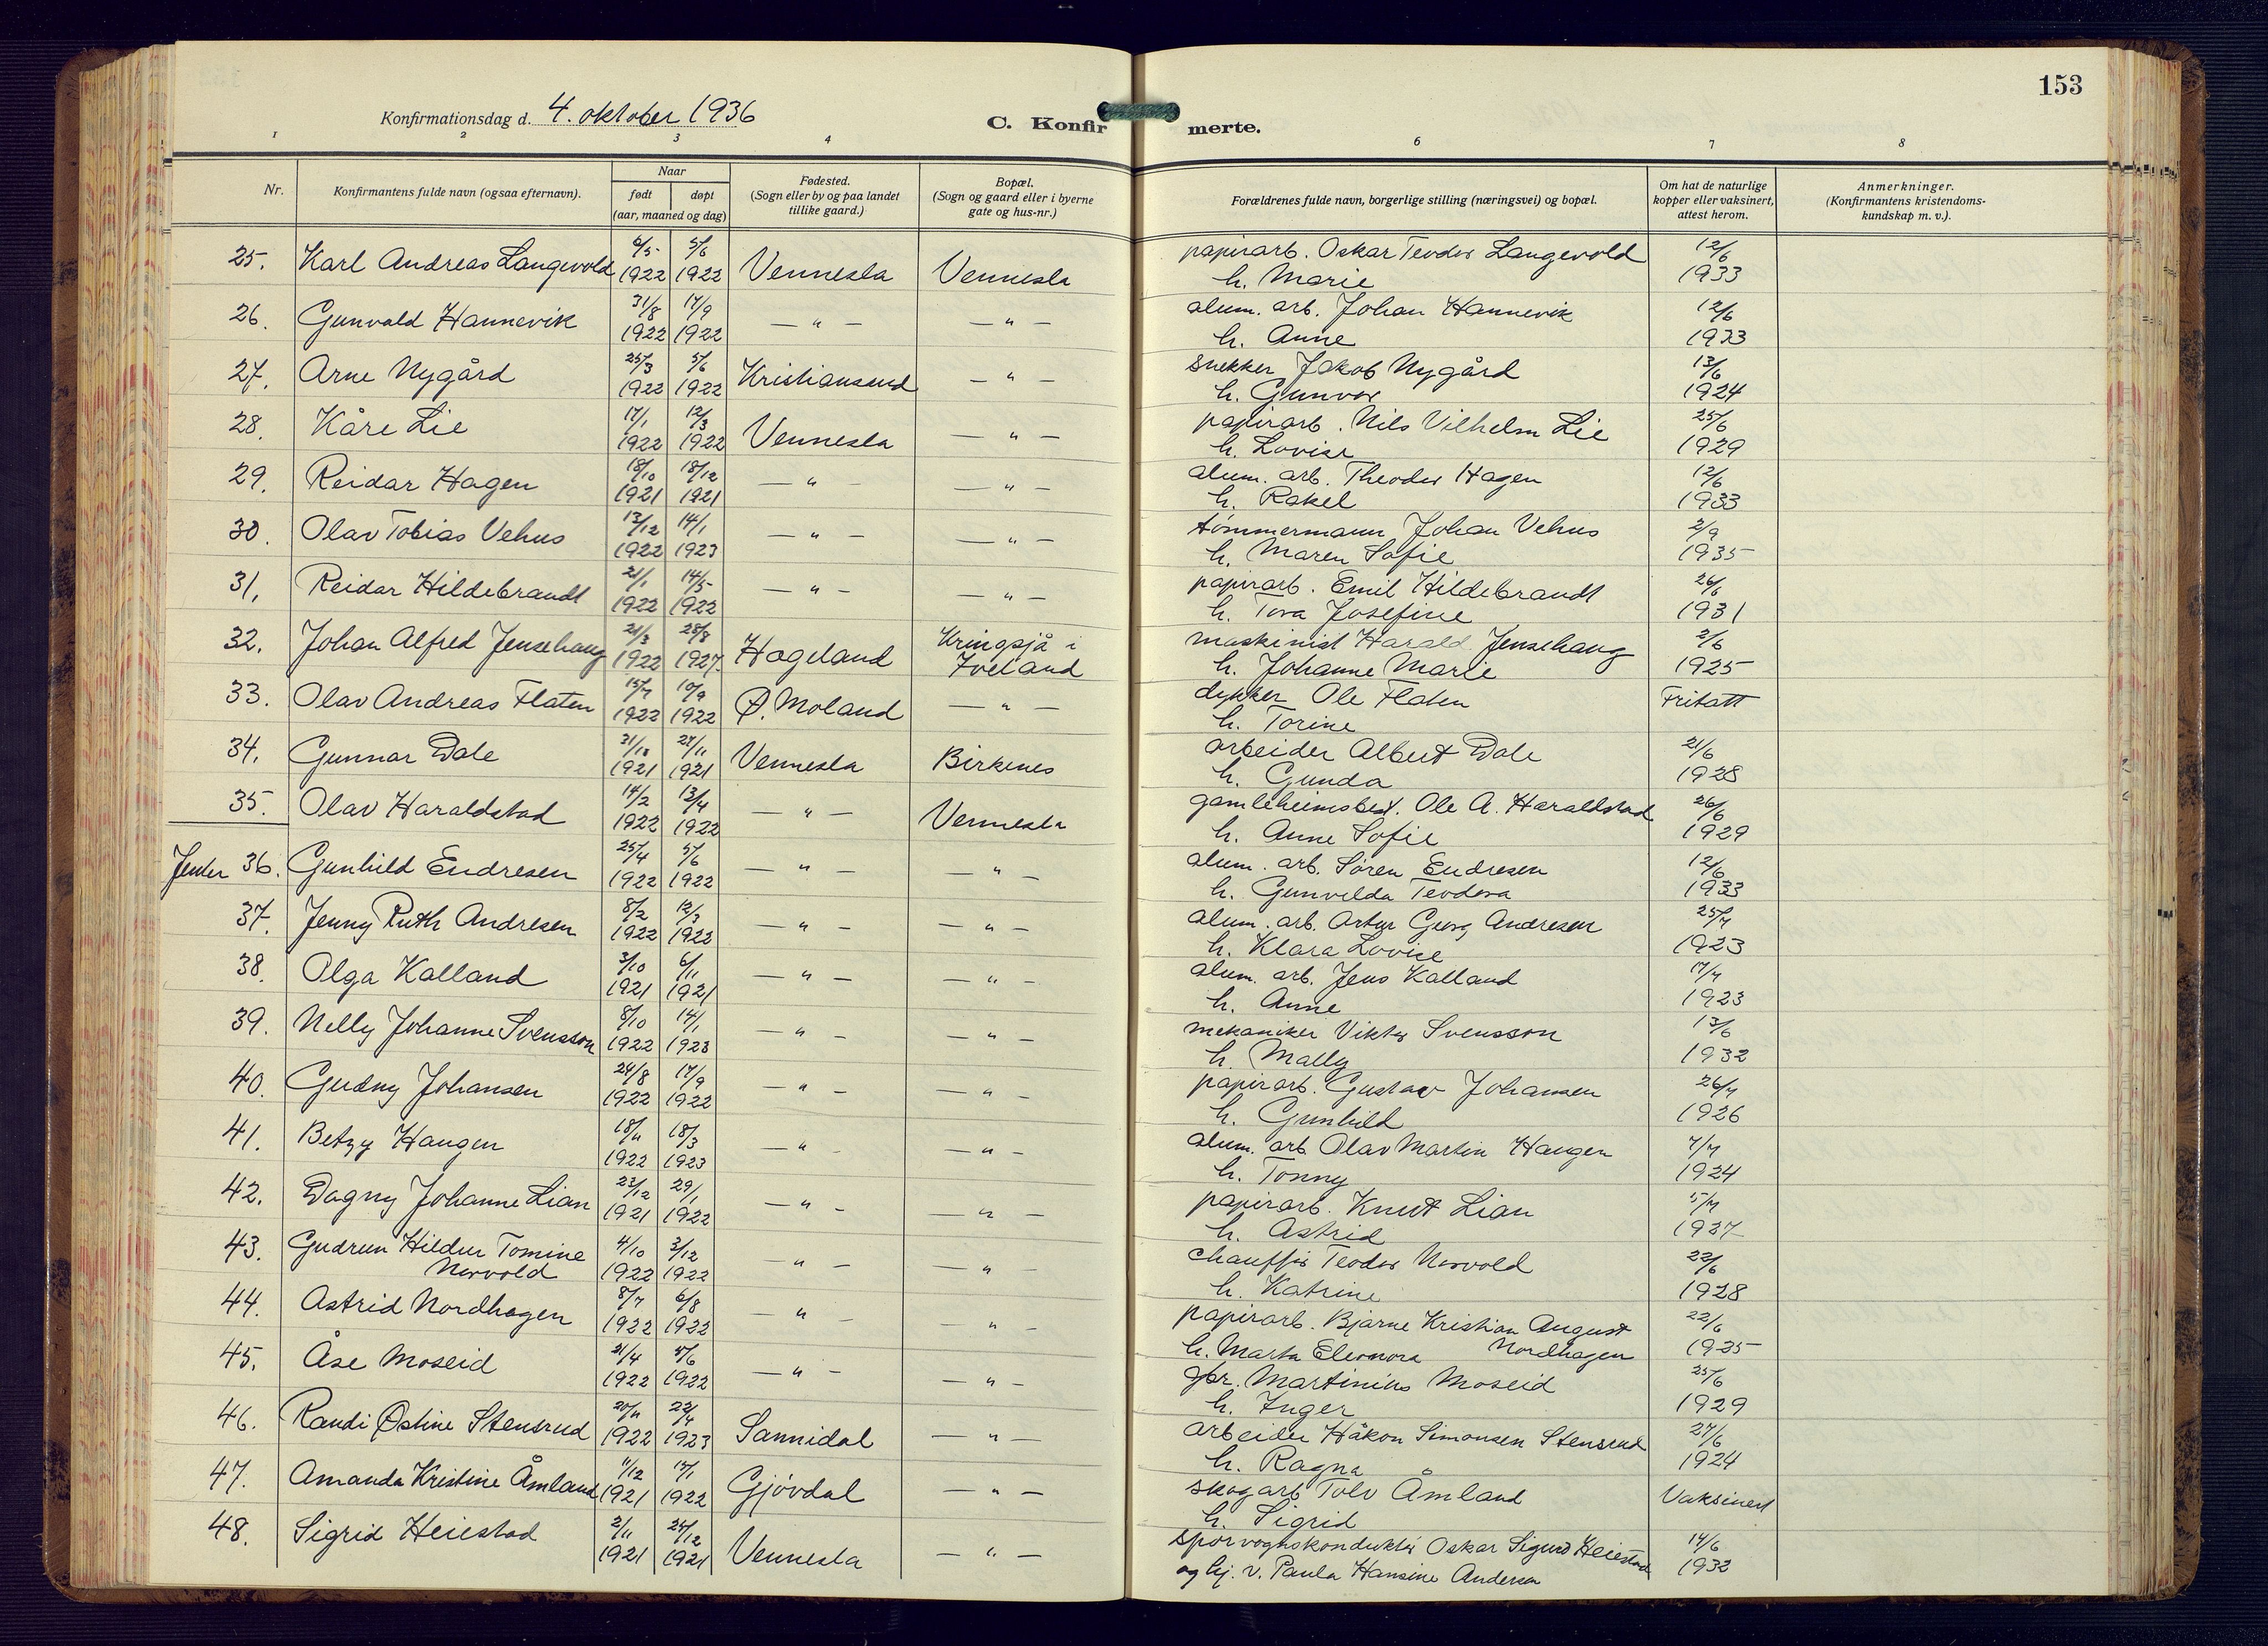 153
Konfirmationsdag d. 4. oktober 1936
C. Konfirmerte.
1 2 3 4 6 7 8
Nr.
Konfirmantens fulde navn (ogsaa efternavn).
Naar
født døpt
(aar, maaned og dag)
Fødested.
(Sogn eller by og paa landet
tillike gaard.)
Bopæl.
(Sogn og gaard eller i byerne
gate og hus-nr.)
Forældrenes fulde navn, borgerlige stilling (næringsvei) og bopæl.
Om hat de naturlige
kopper eller vaksinert,
attest herom.
Anmerkninger.
(Konfirmantens kristendoms-
kundskap m. v.).
25. Karl Andreas Langevold 6/5 1922 5/6 1922 Vennesla Vennesla papirarb. Oskar Teodor Langevold 12/6
h. Marie 1933
26. Gunvald Hannevik 31/8 1922 17/9 1922 — " — — " — alum. arb. Johan Hannevik 12/6
h. Anne 1933
27. Arne Nygård 25/3 1922 5/6 1922 Kristiansand — " — snekker Jakob Nygård 13/6
h. Gunvor 1924
28. Kåre Lie 17/1 1922 12/3 1922 Vennesla — " — papirarb. Nils Vilhelm Lie 25/6
h. Lovise 1929
29. Reidar Hagen 18/10 1921 18/12 1921 — " — — " — alum. arb. Theodor Hagen 12/6
h. Rakel 1933
30. Olav Tobias Vehus 13/12 1922 14/1 1923 — " — — " — tømmermann Johan Vehus 2/9
h. Maren Sofie 1935
31. Reidar Hildebrandt 21/1 1922 14/5 1922 — " — — " — papirarb. Emil Hildebrandt 26/6
h. Tora Josefine 1931
32. Johan Alfred Jensehaug 21/3 1922 28/8 1927. Hægeland Kringsjå i Iveland maskinist Harald Jensehaug 2/6
h. Johanne Marie 1925
33. Olav Andreas Flaten 15/7 1922 10/9 1922 Ø. Moland — " — dykker Ole Flaten Fritatt
h. Torine
34. Gunnar Dale 31/10 1921 27/11 1921 Vennesla Birkenes arbeider Albert Dale 21/6
h. Gunda 1928
35. Olav Haraldstad 14/2 1922 13/4 1922 — " — Vennesla gamleheimsbest. Ole A. Haraldstad 26/6
h. Anne Sofie 1929
Jenter 36. Gunhild Endresen 25/4 1922 5/6 1922 — " — — " — alum. arb. Søren Endresen 12/6
h. Gunvilda Teodora 1933
37. Jenny Ruth Andresen 8/2 1922 12/3 1922 — " — — " — alum. arb. Artur Georg Andresen 25/7
h. Klara Lovise 1923
38. Olga Kalland 3/10 1921 6/11 1921 — " — — " — alum. arb. Jens Kalland 17/7
h. Anne 1923
39. Nelly Johanne Svensson 8/10 1922 14/1 1923 — " — — " — mekaniker Viktor Svensson 13/6
h. Mally 1932
40. Gudny Johansen 24/8 1922 17/9 1922 — " — — " — papirarb. Gustav Johansen 26/7
h. Gunhild 1926
41. Betzy Haugen 18/11 1922 18/3 1923 — " — — " — alum. arb. Olav Martin Haugen 7/7
h. Tonny 1924
42. Dagny Johanne Lian 23/12 1921 29/1 1922 — " — — " — papirarb. Knut Lian 5/7
h. Astrid 1927
43. Gudrun Hildur Tomine Norvold 4/10 1922 3/12 1922 — " — — " — chauffør Teodor Norvold 22/6
h. Katrine 1928
44. Astrid Nordhagen 8/7 1922 6/8 1922 — " — — " — papirarb. Bjarne Kristian August Nordhagen 22/6
h. Marta Eleonora 1935
45. Åse Moseid 21/4 1922 5/6 1922 — " — — " — gbr. Martinius Moseid 25/6
h. Inger 1929
46. Randi Østine Stensrud 20/11 1922 22/4 1923 Sannidal — " — arbeider Håkon Simonsen Stensrud 27/6
h. Ragna 1924
47. Amanda Kristine Åmland 11/12 1921 15/1 1922 Gjøvdal — " — skogarb Tolv Åmland Vaksinert
h. Sigrid
48. Sigrid Heiestad 2/11 1921 24/12 1921 Vennesla — " — sporvognskonduktør Oskar Sigurd Heiestad 14/6
og hj. v. Paula Hansine Andersen 1932